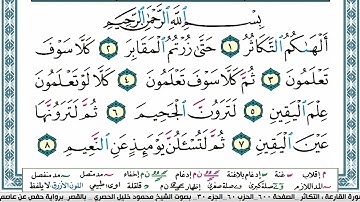 بِسْمِ اللَّهِ الرَّحْمَٰنِ الرَّحِيمِ
أَلْهَاكُمُ التَّكَاثُرُ ١ حَتَّىٰ زُرْتُمُ الْمَقَابِرَ ٢ كَلَّا سَوْفَ
تَعْلَمُونَ ٣ ثُمَّ كَلَّا سَوْفَ تَعْلَمُونَ ٤ كَلَّا لَوْ تَعْلَمُونَ
عِلْمَ الْيَقِينِ ٥ لَتَرَوُنَّ الْجَحِيمَ ٦ ثُمَّ لَتَرَوُنَّهَا
عَيْنَ الْيَقِينِ ٧ ثُمَّ لَتُسْأَلُنَّ يَوْمَئِذٍ عَنِ النَّعِيمِ ٨
سورة القارعة، التكاثر الجزء ٣٠ الحزب ٦٠ بصوت الشيخ محمود خليل الحصري بالقصر برواية حفص عن عاصم